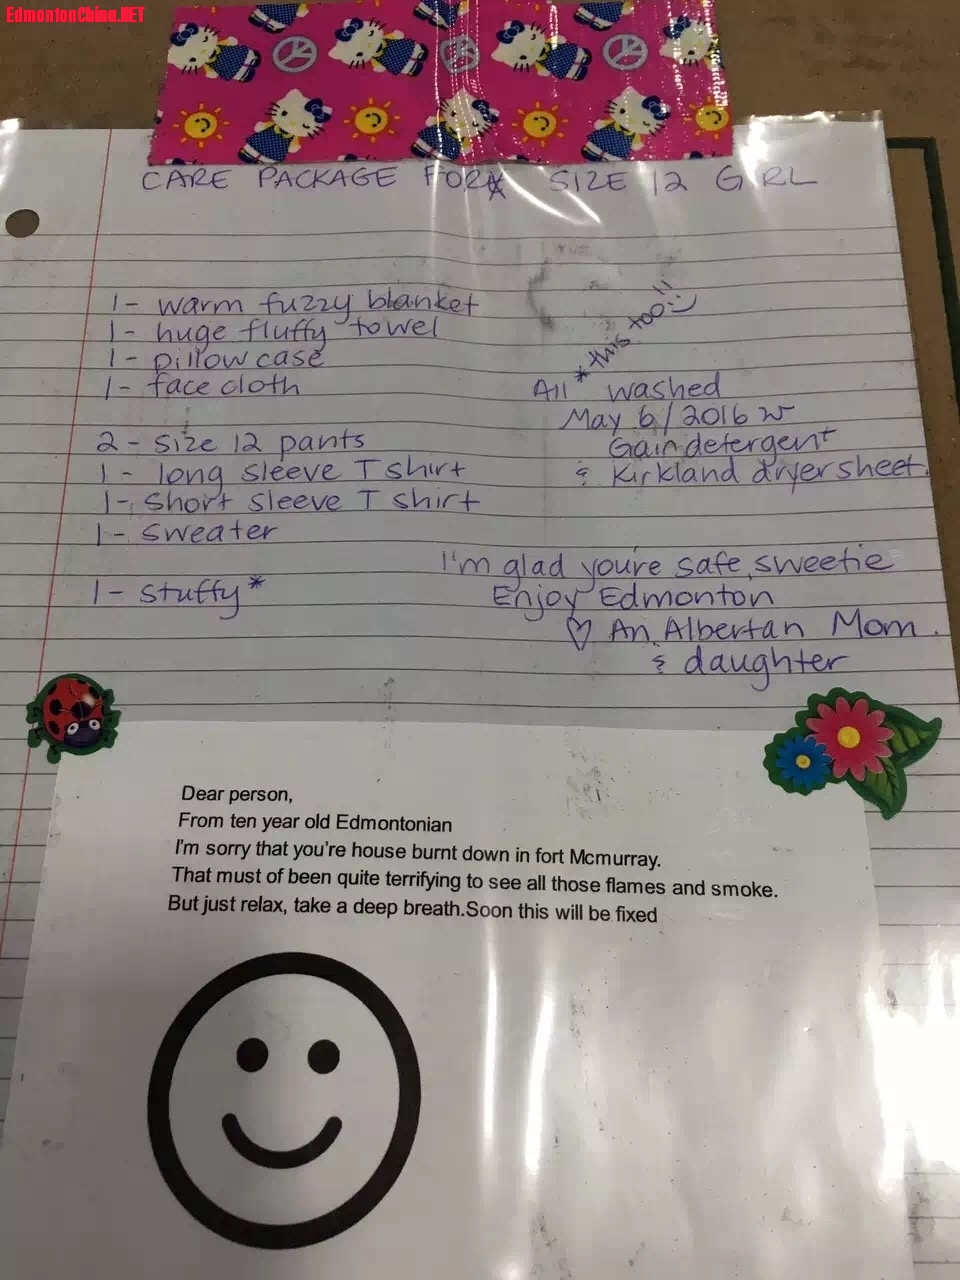 EdmontonChina.NET
CARE PACKAGE FOR SIZE 12 GIRL
1 - warm fuzzy blanket
1 - huge fluffy towel
1 - pillow case
1 - face cloth
2 - size 12 pants
1 - long sleeve T shirt
1 - short sleeve T shirt
1 - sweater
1 - stuffy*
* this too!!
All washed
May 6/2016 w
Gain detergent
& Kirkland dryer sheet.
I'm glad you're safe, sweetie
Enjoy Edmonton
♡ An Albertan Mom.
& daughter
Dear person,
From ten year old Edmontonian
I'm sorry that you're house burnt down in fort Mcmurray.
That must of been quite terrifying to see all those flames and smoke.
But just relax, take a deep breath.Soon this will be fixed